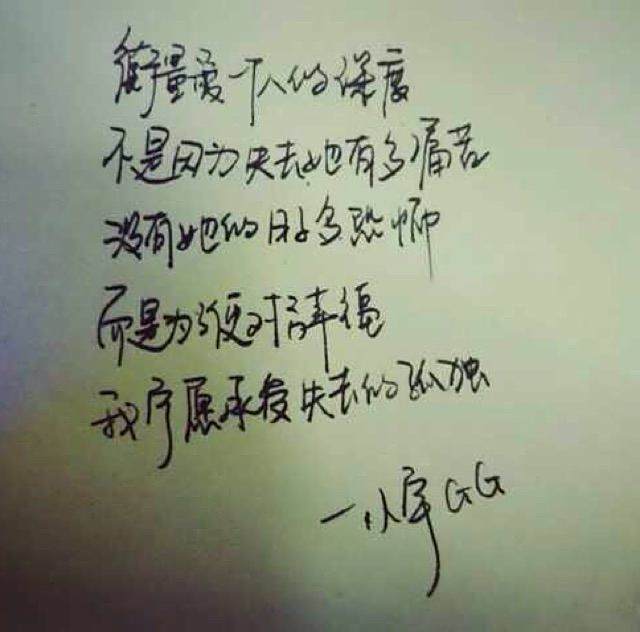 衡量爱一个人的深度
不是因为失去她有多痛苦
没有她的日子多恐怖
而是为了她幸福
我宁愿承受失去的孤独
一小宇GG